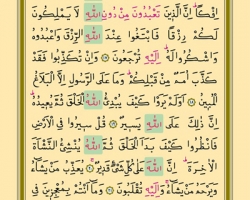 إِفْكًا ۚ إِنَّ الَّذِينَ تَعْبُدُونَ مِنْ دُونِ اللَّهِ لَا يَمْلِكُونَ
لَكُمْ رِزْقًا فَابْتَغُوا عِنْدَ اللَّهِ الرِّزْقَ وَاعْبُدُوهُ
وَاشْكُرُوا لَهُ ۖ إِلَيْهِ تُرْجَعُونَ ۝ وَإِنْ تُكَذِّبُوا فَقَدْ
كَذَّبَ أُمَمٌ مِنْ قَبْلِكُمْ ۖ وَمَا عَلَى الرَّسُولِ إِلَّا الْبَلَاغُ
الْمُبِينُ ۝ أَوَلَمْ يَرَوْا كَيْفَ يُبْدِئُ اللَّهُ الْخَلْقَ ثُمَّ يُعِيدُهُ ۚ
إِنَّ ذَٰلِكَ عَلَى اللَّهِ يَسِيرٌ ۝ قُلْ سِيرُوا فِي الْأَرْضِ
فَانْظُرُوا كَيْفَ بَدَأَ الْخَلْقَ ۚ ثُمَّ اللَّهُ يُنْشِئُ النَّشْأَةَ
الْآخِرَةَ ۚ إِنَّ اللَّهَ عَلَىٰ كُلِّ شَيْءٍ قَدِيرٌ ۝ يُعَذِّبُ مَنْ يَشَاءُ
وَيَرْحَمُ مَنْ يَشَاءُ ۖ وَإِلَيْهِ تُقْلَبُونَ ۝ وَمَا أَنْتُمْ بِمُعْجِزِينَ فِي